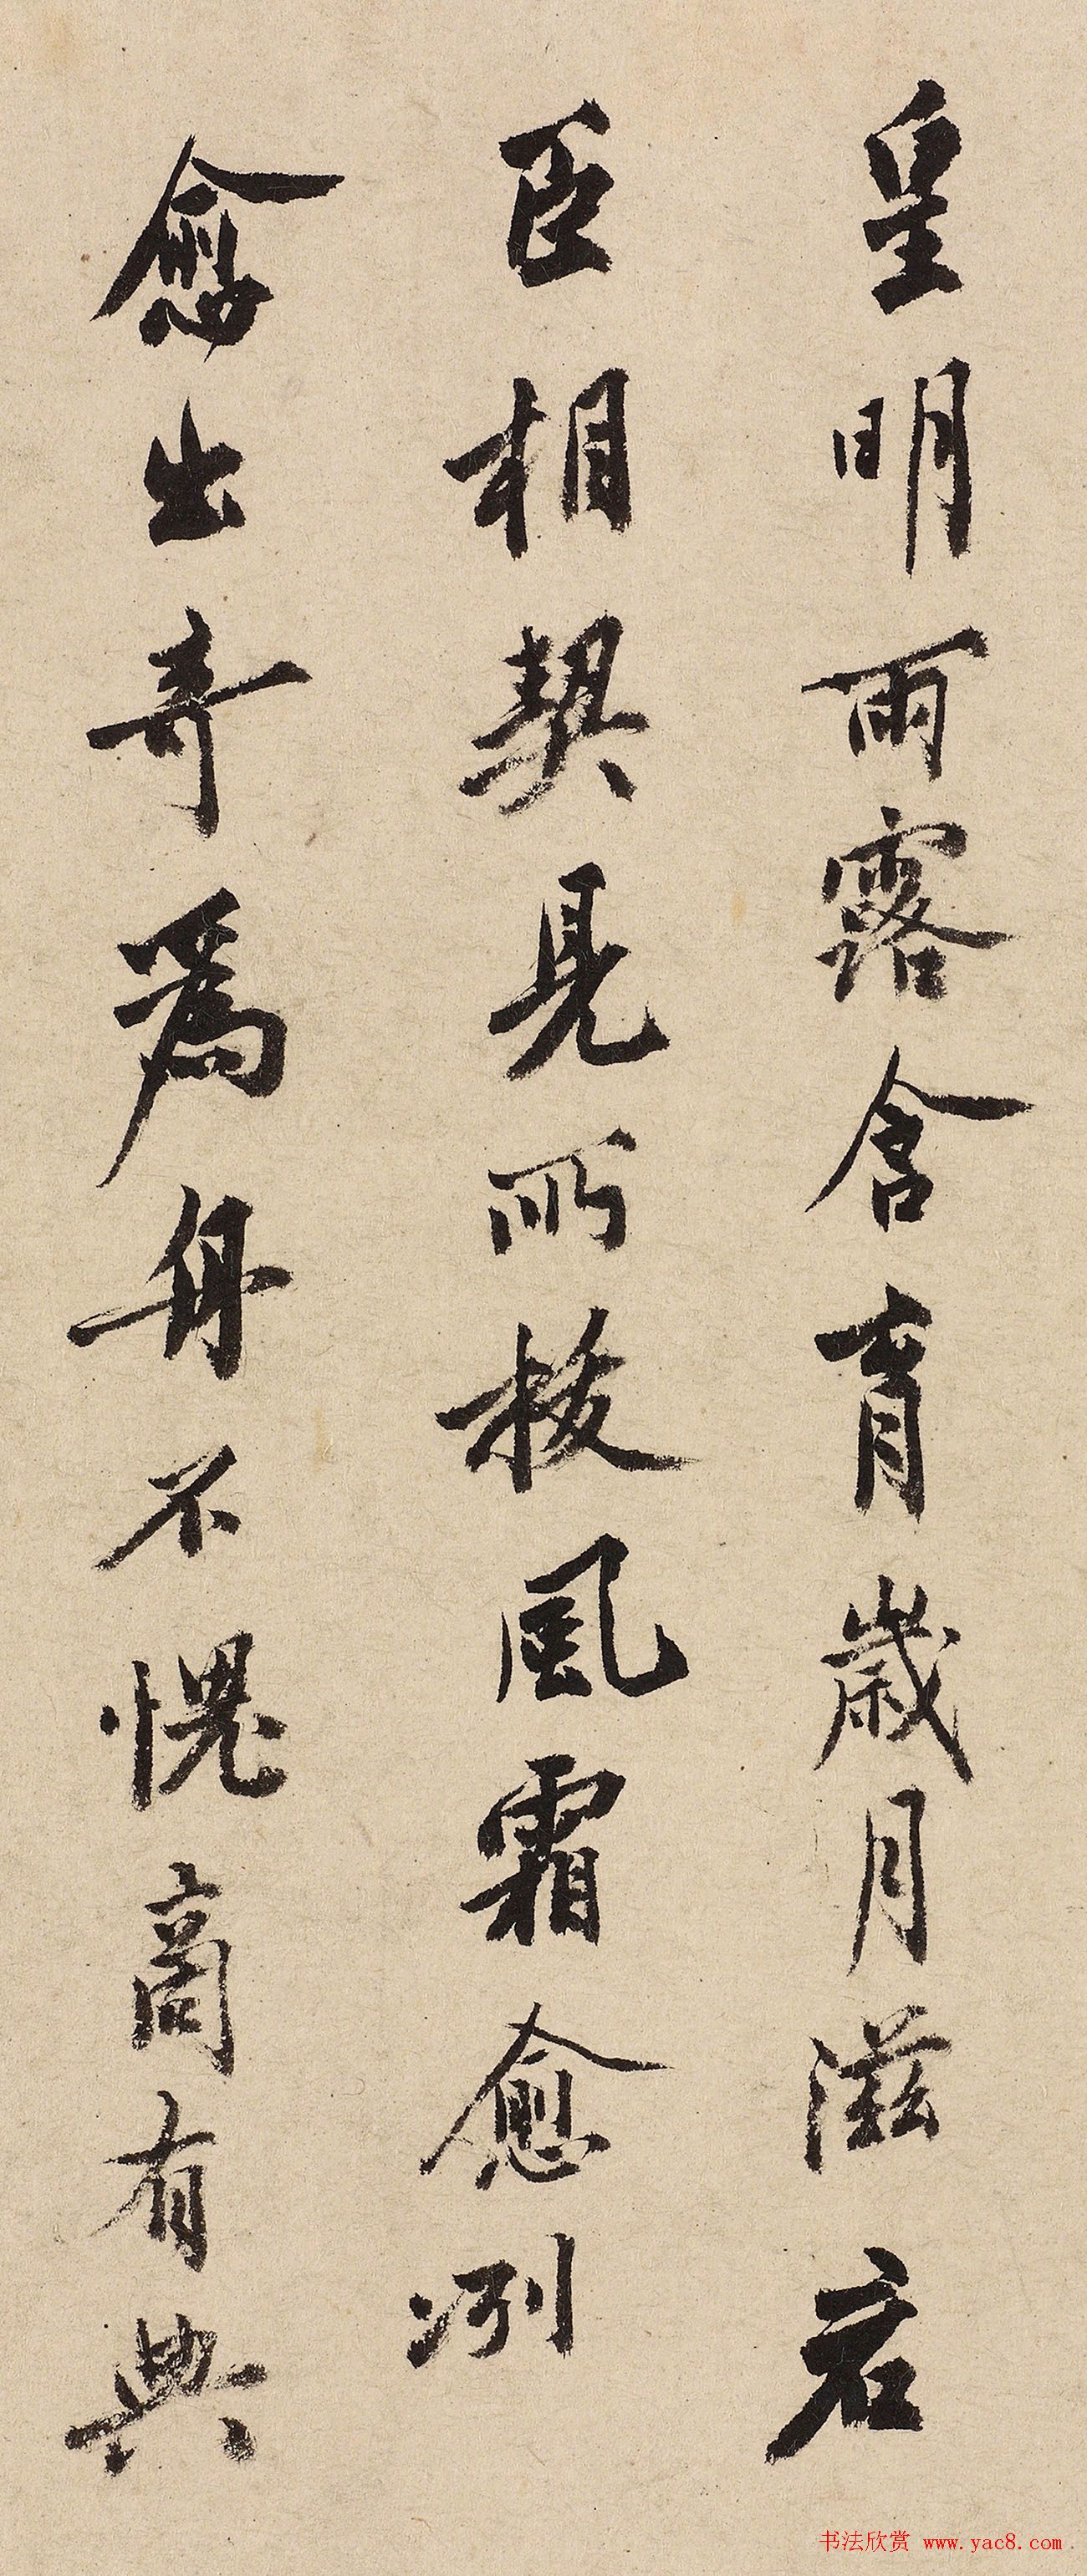 皇明雨露含育歲月滋君
臣相契見所拔風霜愈冽
愈出奇爲舟不愧商有典
书法欣赏 www.yac8.com